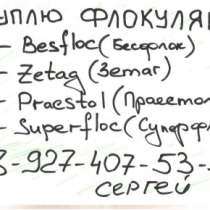 УПЛЮ ФЛОКУЛЯ
- Besfloc (Бесфлок)
- Zetag (Зетаг)
- Praestol (Праестол
- Superfloc (Суперфл
8-927-407-53-
СЕРГЕЙ